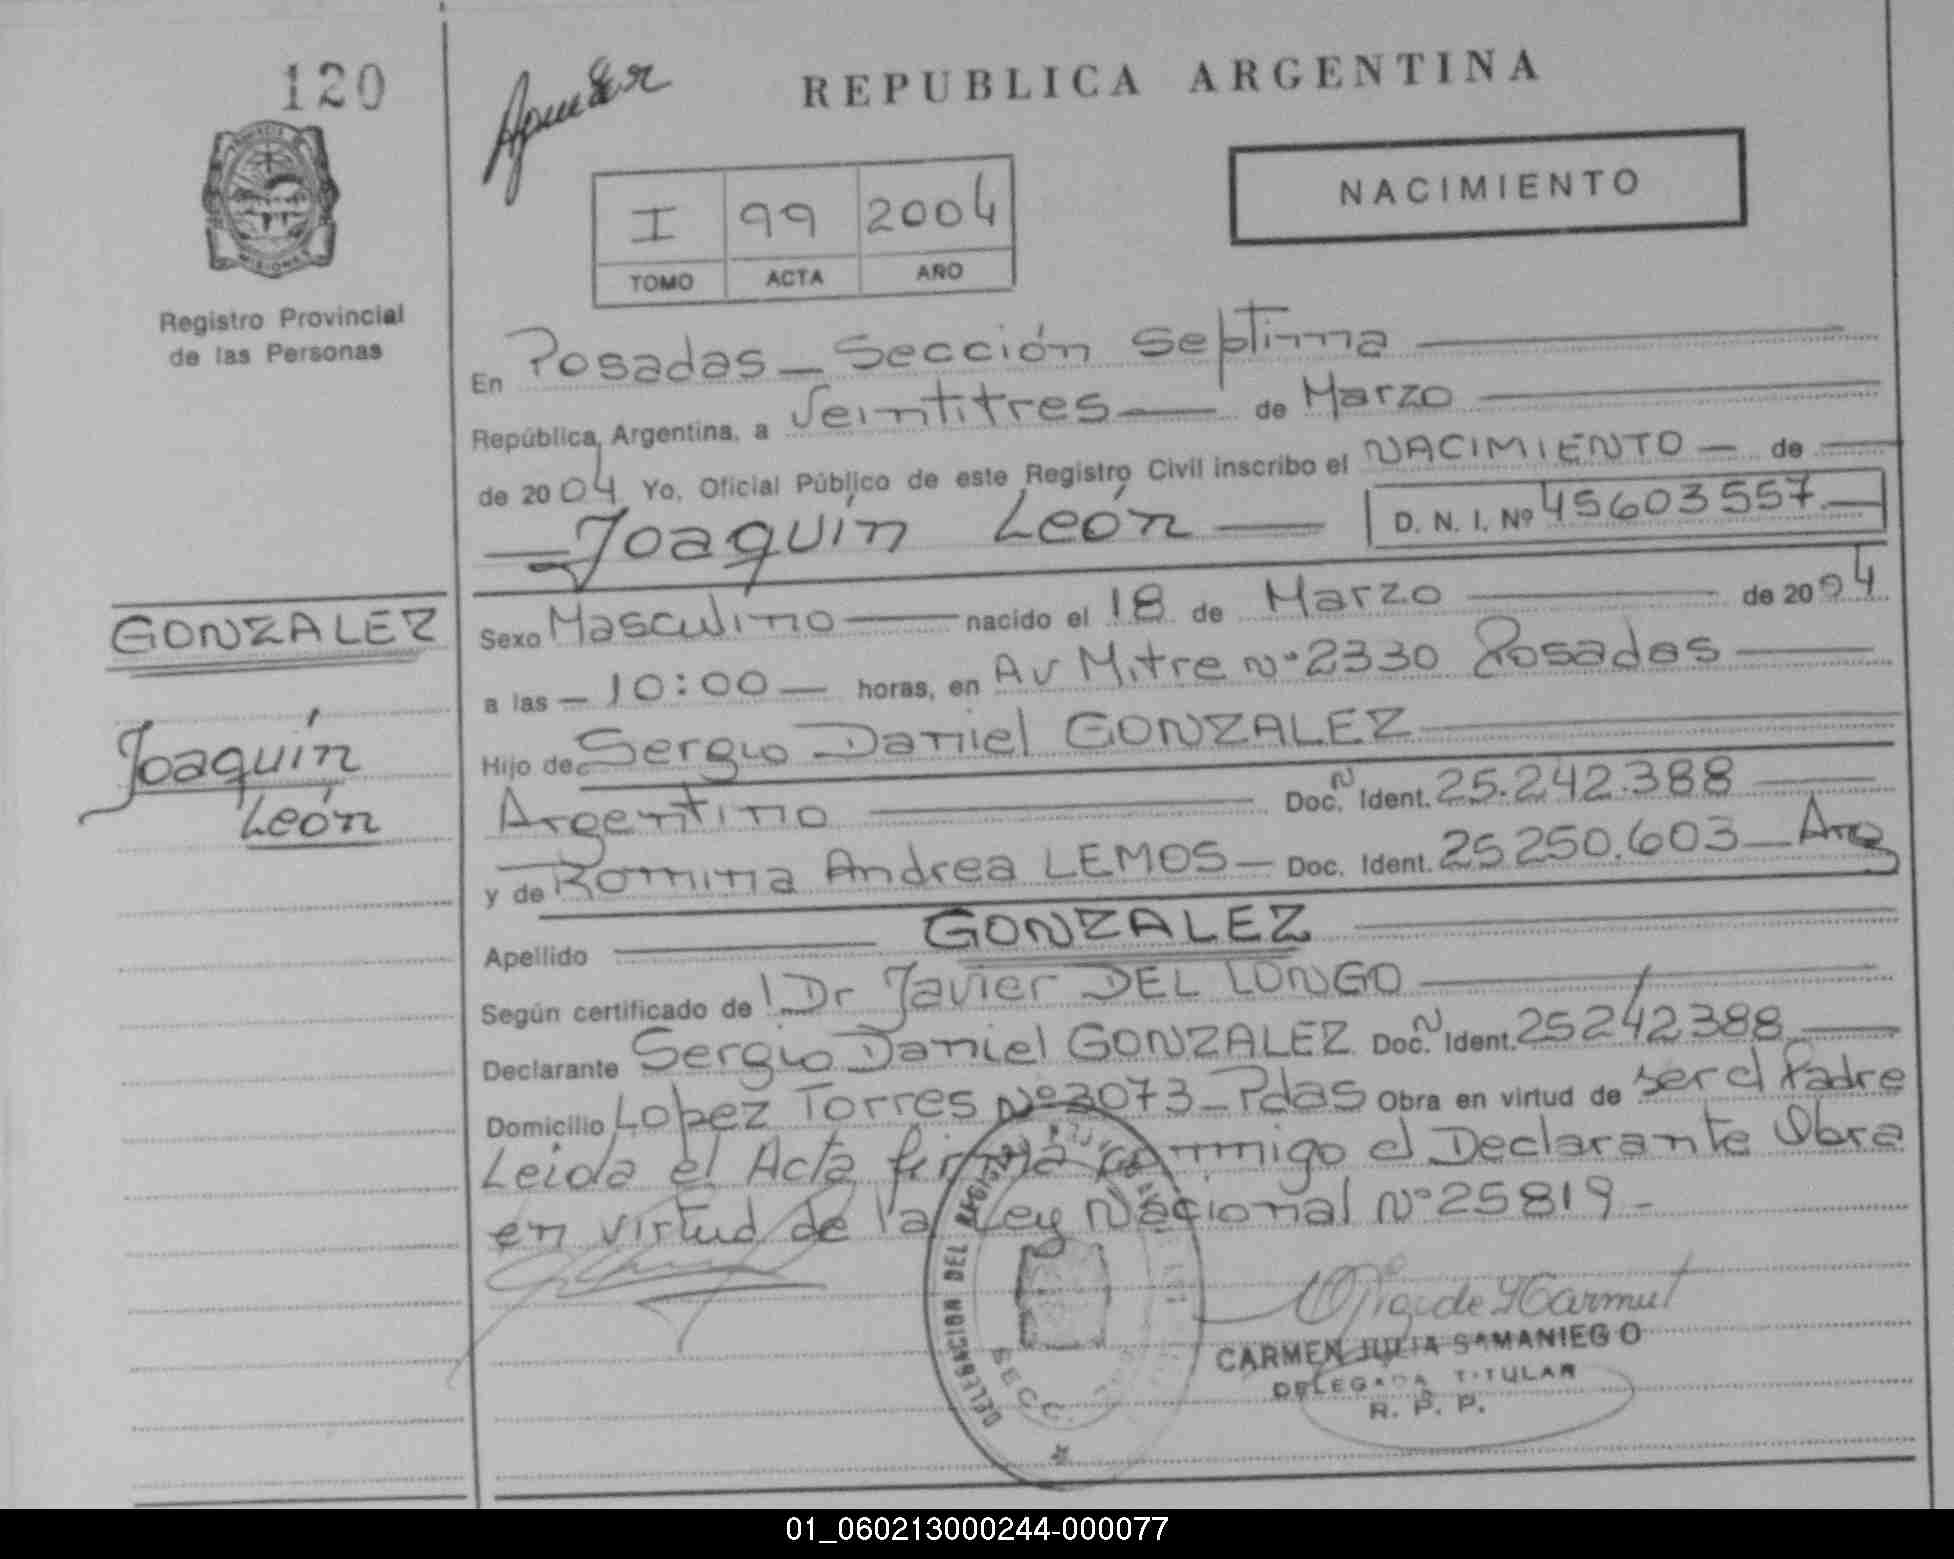 120
REPUBLICA ARGENTINA
NACIMIENTO
I 99 2004
TOMO ACTA AÑO
Registro Provincial
de las Personas
En Posadas - Sección Septima
República Argentina, a Veintitres de Marzo
de 2004 Yo, Oficial Público de este Registro Civil inscribo el NACIMIENTO - de
Joaquín León D. N. I. Nº 45603557
GONZALEZ
Joaquín
León
Sexo Masculino nacido el 18 de Marzo de 2004
a las - 10:00 - horas, en Av Mitre Nº 2330 Posadas
Hijo de Sergio Daniel GONZALEZ
Argentino Doc. N Ident. 25.242.388
y de Romina Andrea LEMOS - Doc. Ident. 25250.603 - Arg
Apellido GONZALEZ
Según certificado de Dr Javier DEL LONGO
Declarante Sergio Daniel GONZALEZ Doc. N Ident. 25242388
Domicilio Lopez Torres Nº 3073 - Pdas Obra en virtud de ser el Padre
Leida el Acta firma conmigo el Declarante Obra
en virtud de la Ley Nacional Nº 25819 -
DELEGACION DEL REGISTRO
SECC.
CARMEN JULIA SAMANIEGO
DELEGADA TITULAR
R. P. P.
01_060213000244-000077